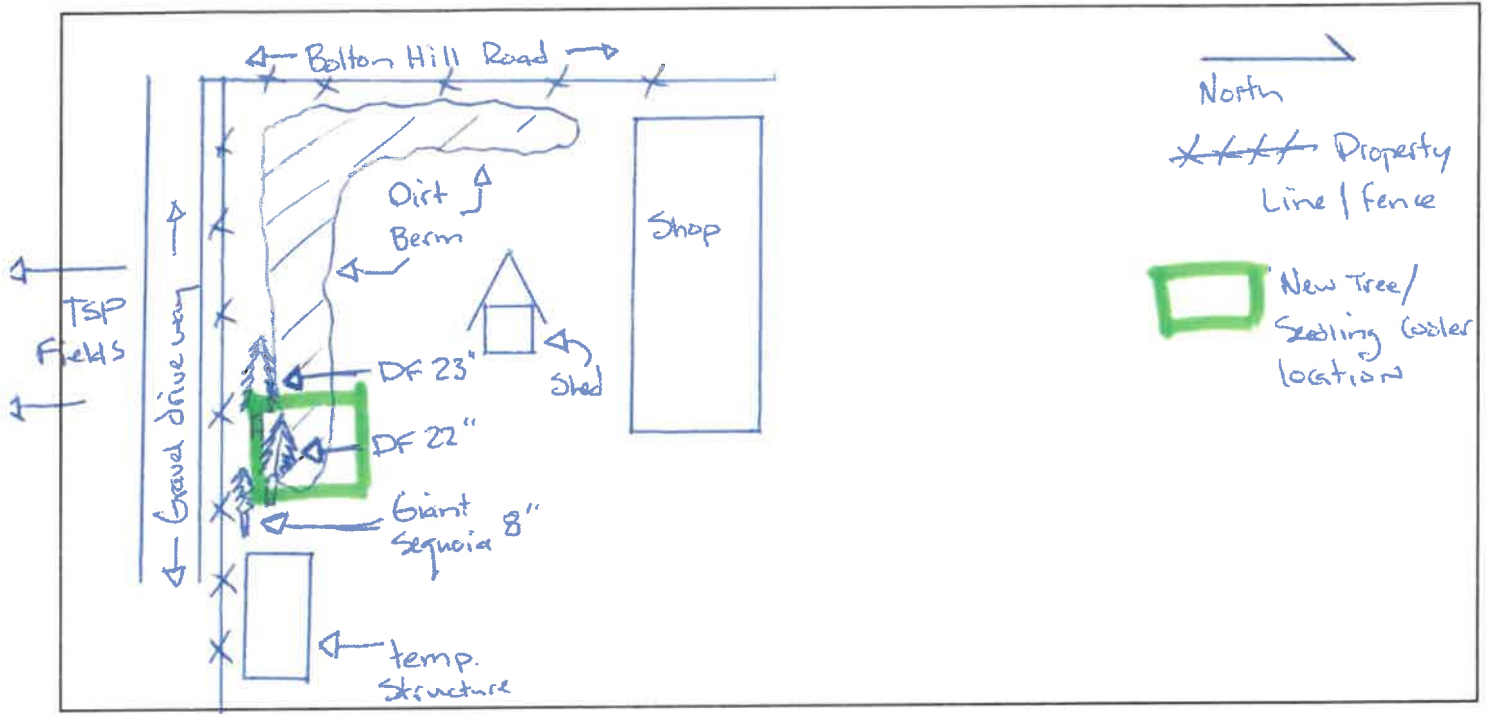 Bolton Hill Road
North
Property
Line / Fence
New Tree/
Seedling Cooler
location
Dirt
Berm
Shop
TSP
Fields
Gravel driveway
Shed
DF 23"
DF 22"
Giant
Sequoia 8"
temp.
Structure